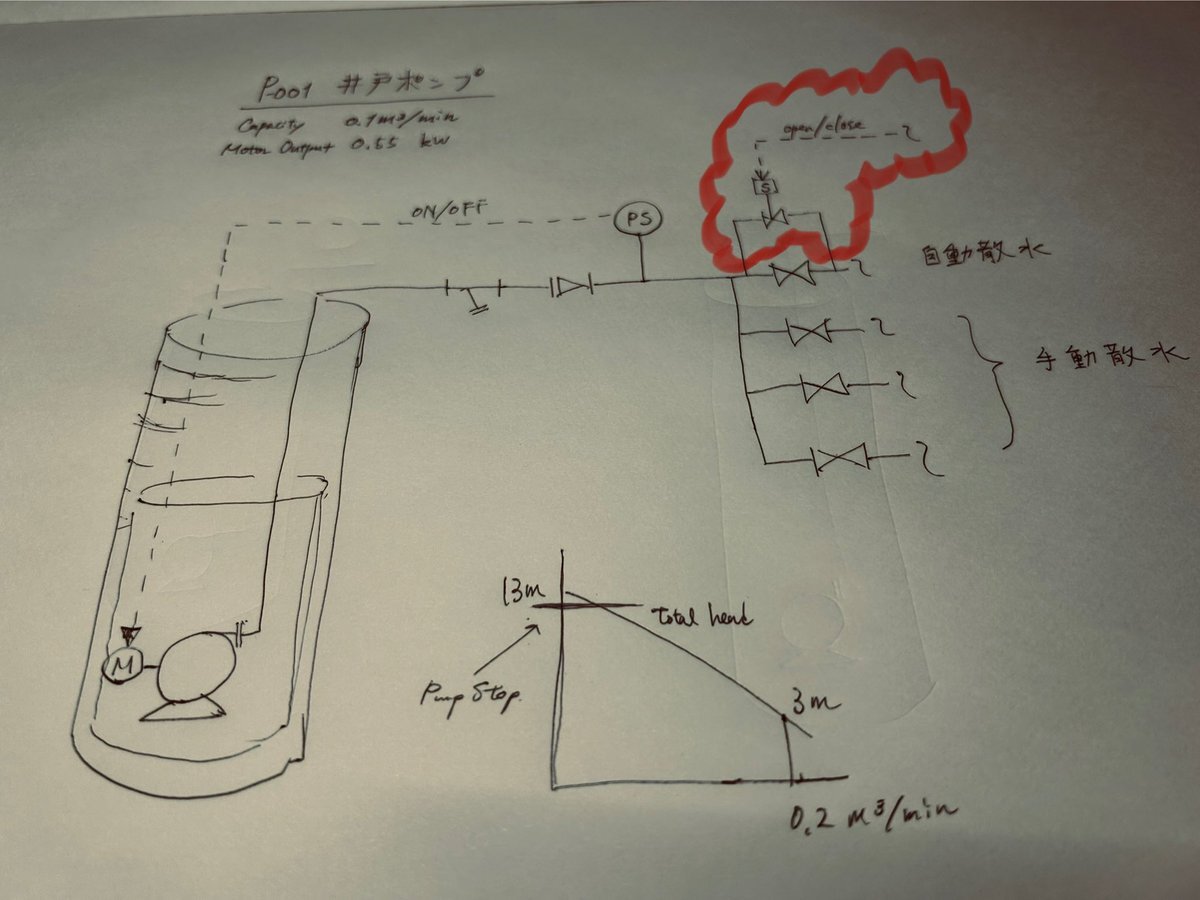 P-001 井戸ポンプ
Capacity 0.1 m3/min
Motor Output 0.55 kW
open/close
S
ON/OFF
PS
自動散水
手動散水
M
13m
Total head
Pump Stop.
3m
0.2 m3/min